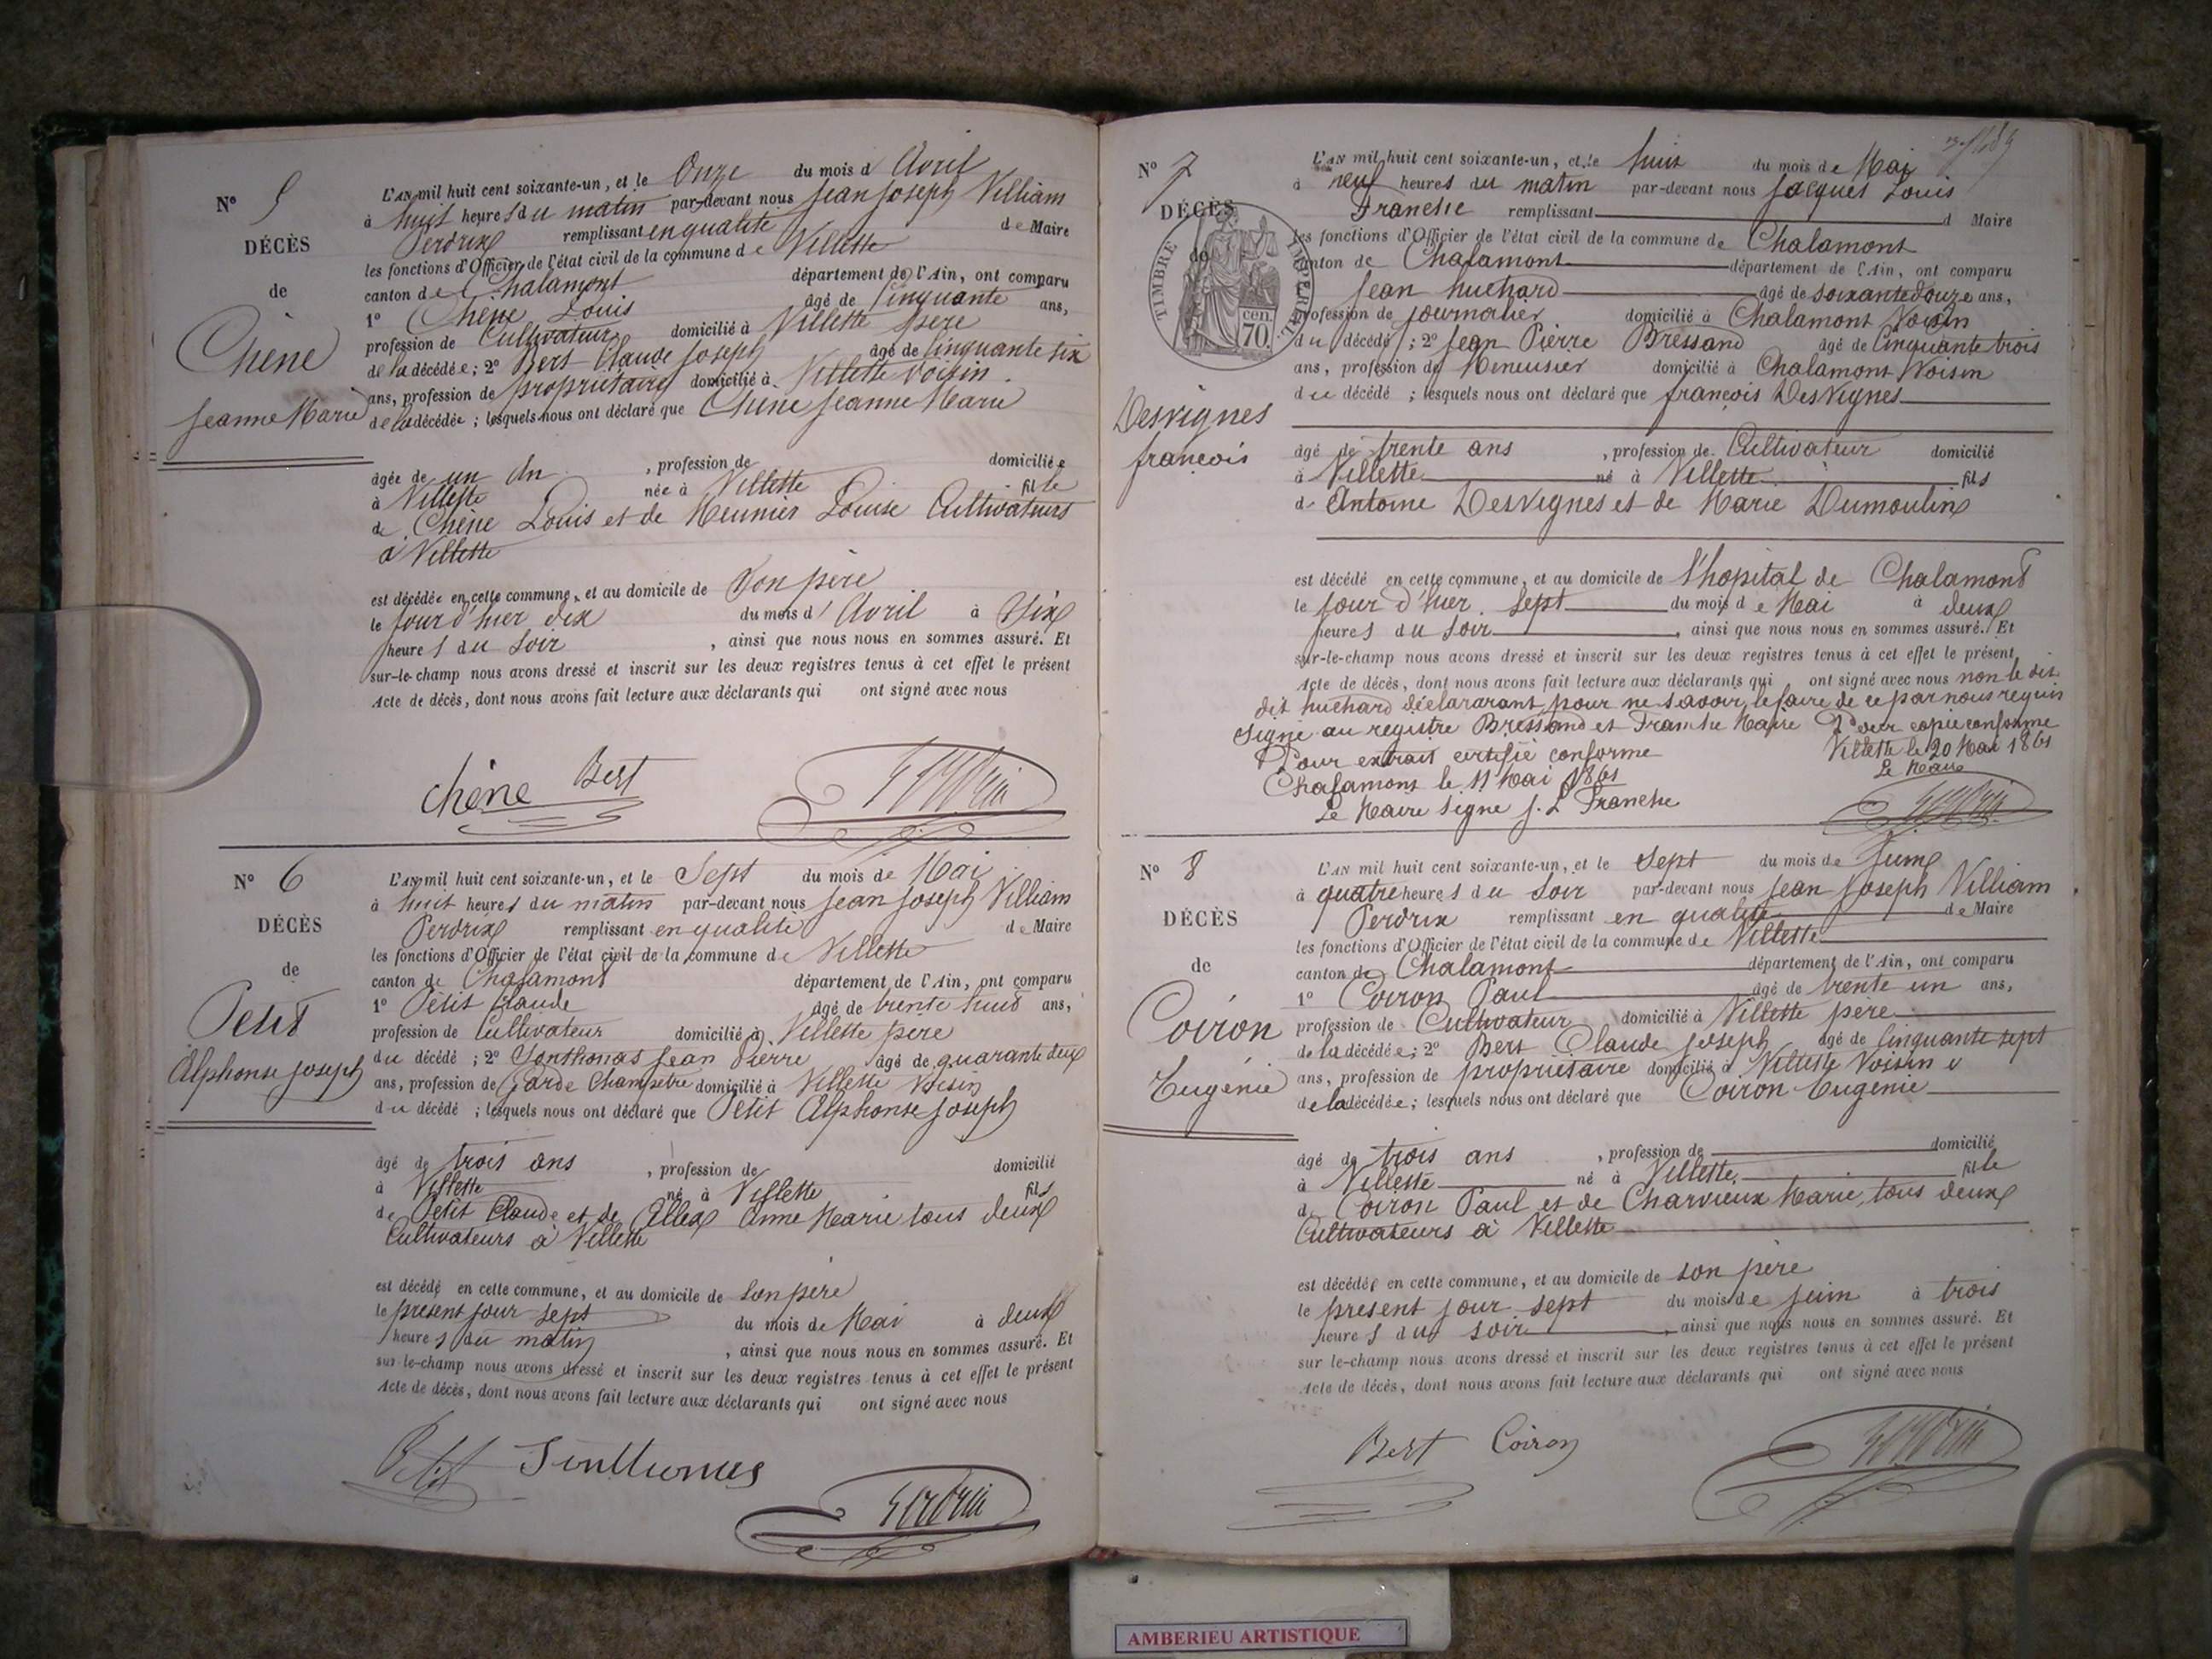 N° 5
DÉCÈS
de
Chêne
Jeanne Marie
L'AN mil huit cent soixante-un, et le Onze du mois d'Avril
à huit heures du matin par-devant nous Jean Joseph Villiam
Perdrix remplissant en qualité de Maire
les fonctions d'Officier de l'état civil de la commune de Villette
canton de Chalamont département de l'Ain, ont comparu
1° Chêne Louis âgé de Cinquante ans,
profession de Cultivateur domicilié à Villette père
de la décédée ; 2° Bert Claude Joseph âgé de Cinquante six
ans, profession de propriétaire domicilié à Villette Voisin
de la décédée ; lesquels nous ont déclaré que Chêne Jeanne Marie
âgée de un An , profession de domiciliée
à Villette née à Villette fille
de Chêne Louis et de Meunier Louise Cultivateurs
à Villette
est décédée en cette commune, et au domicile de Son père
le Jour d'hier dix du mois d'Avril à Six
heures du Soir , ainsi que nous nous en sommes assuré. Et
sur-le-champ nous avons dressé et inscrit sur les deux registres tenus à cet effet le présent
Acte de décès, dont nous avons fait lecture aux déclarants qui ont signé avec nous
chêne Bert Perdrix
N° 6
DÉCÈS
de
Petit
Alphonse Joseph
L'AN mil huit cent soixante-un, et le Sept du mois de Mai
à huit heures du matin par-devant nous Jean Joseph Villiam
Perdrix remplissant en qualité de Maire
les fonctions d'Officier de l'état civil de la commune de Villette
canton de Chalamont département de l'Ain, ont comparu
1° Petit Claude âgé de trente huit ans,
profession de Cultivateur domicilié à Villette père
du décédé ; 2° Sonthonas Jean Pierre âgé de quarante deux
ans, profession de Garde Champêtre domicilié à Villette Voisin
du décédé ; lesquels nous ont déclaré que Petit Alphonse Joseph
âgé de trois ans , profession de domicilié
à Villette né à Villette fils
de Petit Claude et de Allex Anne Marie tous deux
Cultivateurs à Villette
est décédé en cette commune, et au domicile de Son père
le présent Jour Sept du mois de Mai à deux
heures du matin , ainsi que nous nous en sommes assuré. Et
sur-le-champ nous avons dressé et inscrit sur les deux registres tenus à cet effet le présent
Acte de décès, dont nous avons fait lecture aux déclarants qui ont signé avec nous
Petit Sonthonas Perdrix
N° 7
DÉCÈS
de
TIMBRE IMPERIAL
70 cen.
Desvignes
françois
L'AN mil huit cent soixante-un, et le huit du mois de Mai
à neuf heures du matin par-devant nous Jacques Louis
Franche remplissant d Maire
les fonctions d'Officier de l'état civil de la commune de Chalamont
canton de Chalamont département de l'Ain, ont comparu
Jean huchard âgé de soixante douze ans,
profession de journalier domicilié à Chalamont Voisin
du décédé ; 2° Jean Pierre Bressand âgé de Cinquante trois
ans, profession de Menuisier domicilié à Chalamont Voisin
du décédé ; lesquels nous ont déclaré que françois DesVignes
âgé de trente ans , profession de Cultivateur domicilié
à Villette né à Villette fils
d' Antoine DesVignes et de Marie Dumoulin
est décédé en cette commune, et au domicile de l'hopital de Chalamont
le Jour d'hier Sept du mois de Mai à deux
heures du Soir , ainsi que nous nous en sommes assuré. Et
sur-le-champ nous avons dressé et inscrit sur les deux registres tenus à cet effet le présent
Acte de décès, dont nous avons fait lecture aux déclarants qui ont signé avec nous non le dit
dit huchard déclararant pour ne savoir le faire de ce par nous requis
Signé au registre Bressand et Franche Maire Pour copie conforme
Pour extrait certifié conforme Villette le 20 Mai 1861
Chalamont le 11 Mai 1861 Le Maire
Le Maire Signé J. L Franche Perdrix
N° 8
DÉCÈS
de
Coiron
Eugénie
L'AN mil huit cent soixante-un, et le Sept du mois de Juin
à quatre heures du Soir par-devant nous Jean Joseph Villiam
Perdrix remplissant en qualité de Maire
les fonctions d'Officier de l'état civil de la commune de Villette
canton de Chalamont département de l'Ain, ont comparu
1° Coiron Paul âgé de trente un ans,
profession de Cultivateur domicilié à Villette père
de la décédée ; 2° Bert Claude Joseph âgé de Cinquante sept
ans, profession de propriétaire domicilié à Villette Voisin
de la décédée ; lesquels nous ont déclaré que Coiron Eugenie
âgé de trois ans , profession de domicilié
à Villette né à Villette fille
de Coiron Paul et de Charvieux Marie, tous deux
Cultivateurs à Villette
est décédée en cette commune, et au domicile de son père
le présent jour sept du mois de juin à trois
heures du soir , ainsi que nous nous en sommes assuré. Et
sur le-champ nous avons dressé et inscrit sur les deux registres tenus à cet effet le présent
Acte de décès, dont nous avons fait lecture aux déclarants qui ont signé avec nous
Bert Coiron Perdrix
AMBERIEU ARTISTIQUE